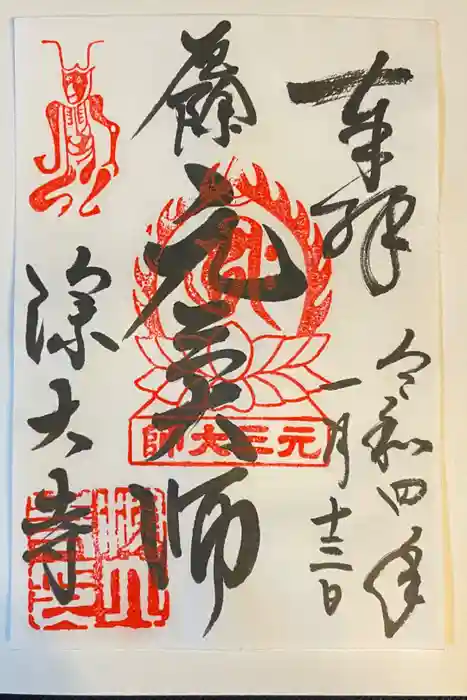 奉拝
令和四年
一月十三日
元三大師
深大寺
師大三元